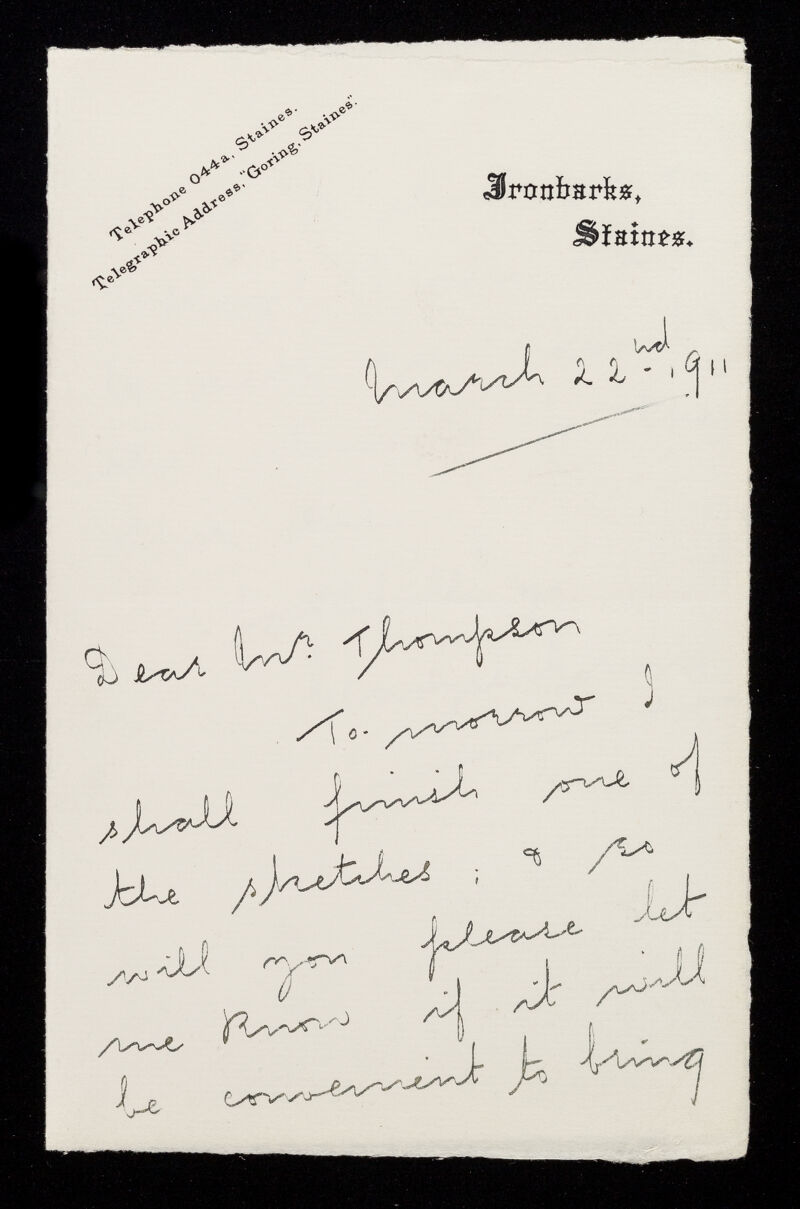 Telephone 044a, Staines.
Telegraphic Address, "Goring, Staines".
Ironbarks,
Staines.
March 22nd. 1911
Dear Mr. Thompson
To-morrow I
shall finish one of
the sketches; & so
will you please let
me know if it will
be convenient to bring